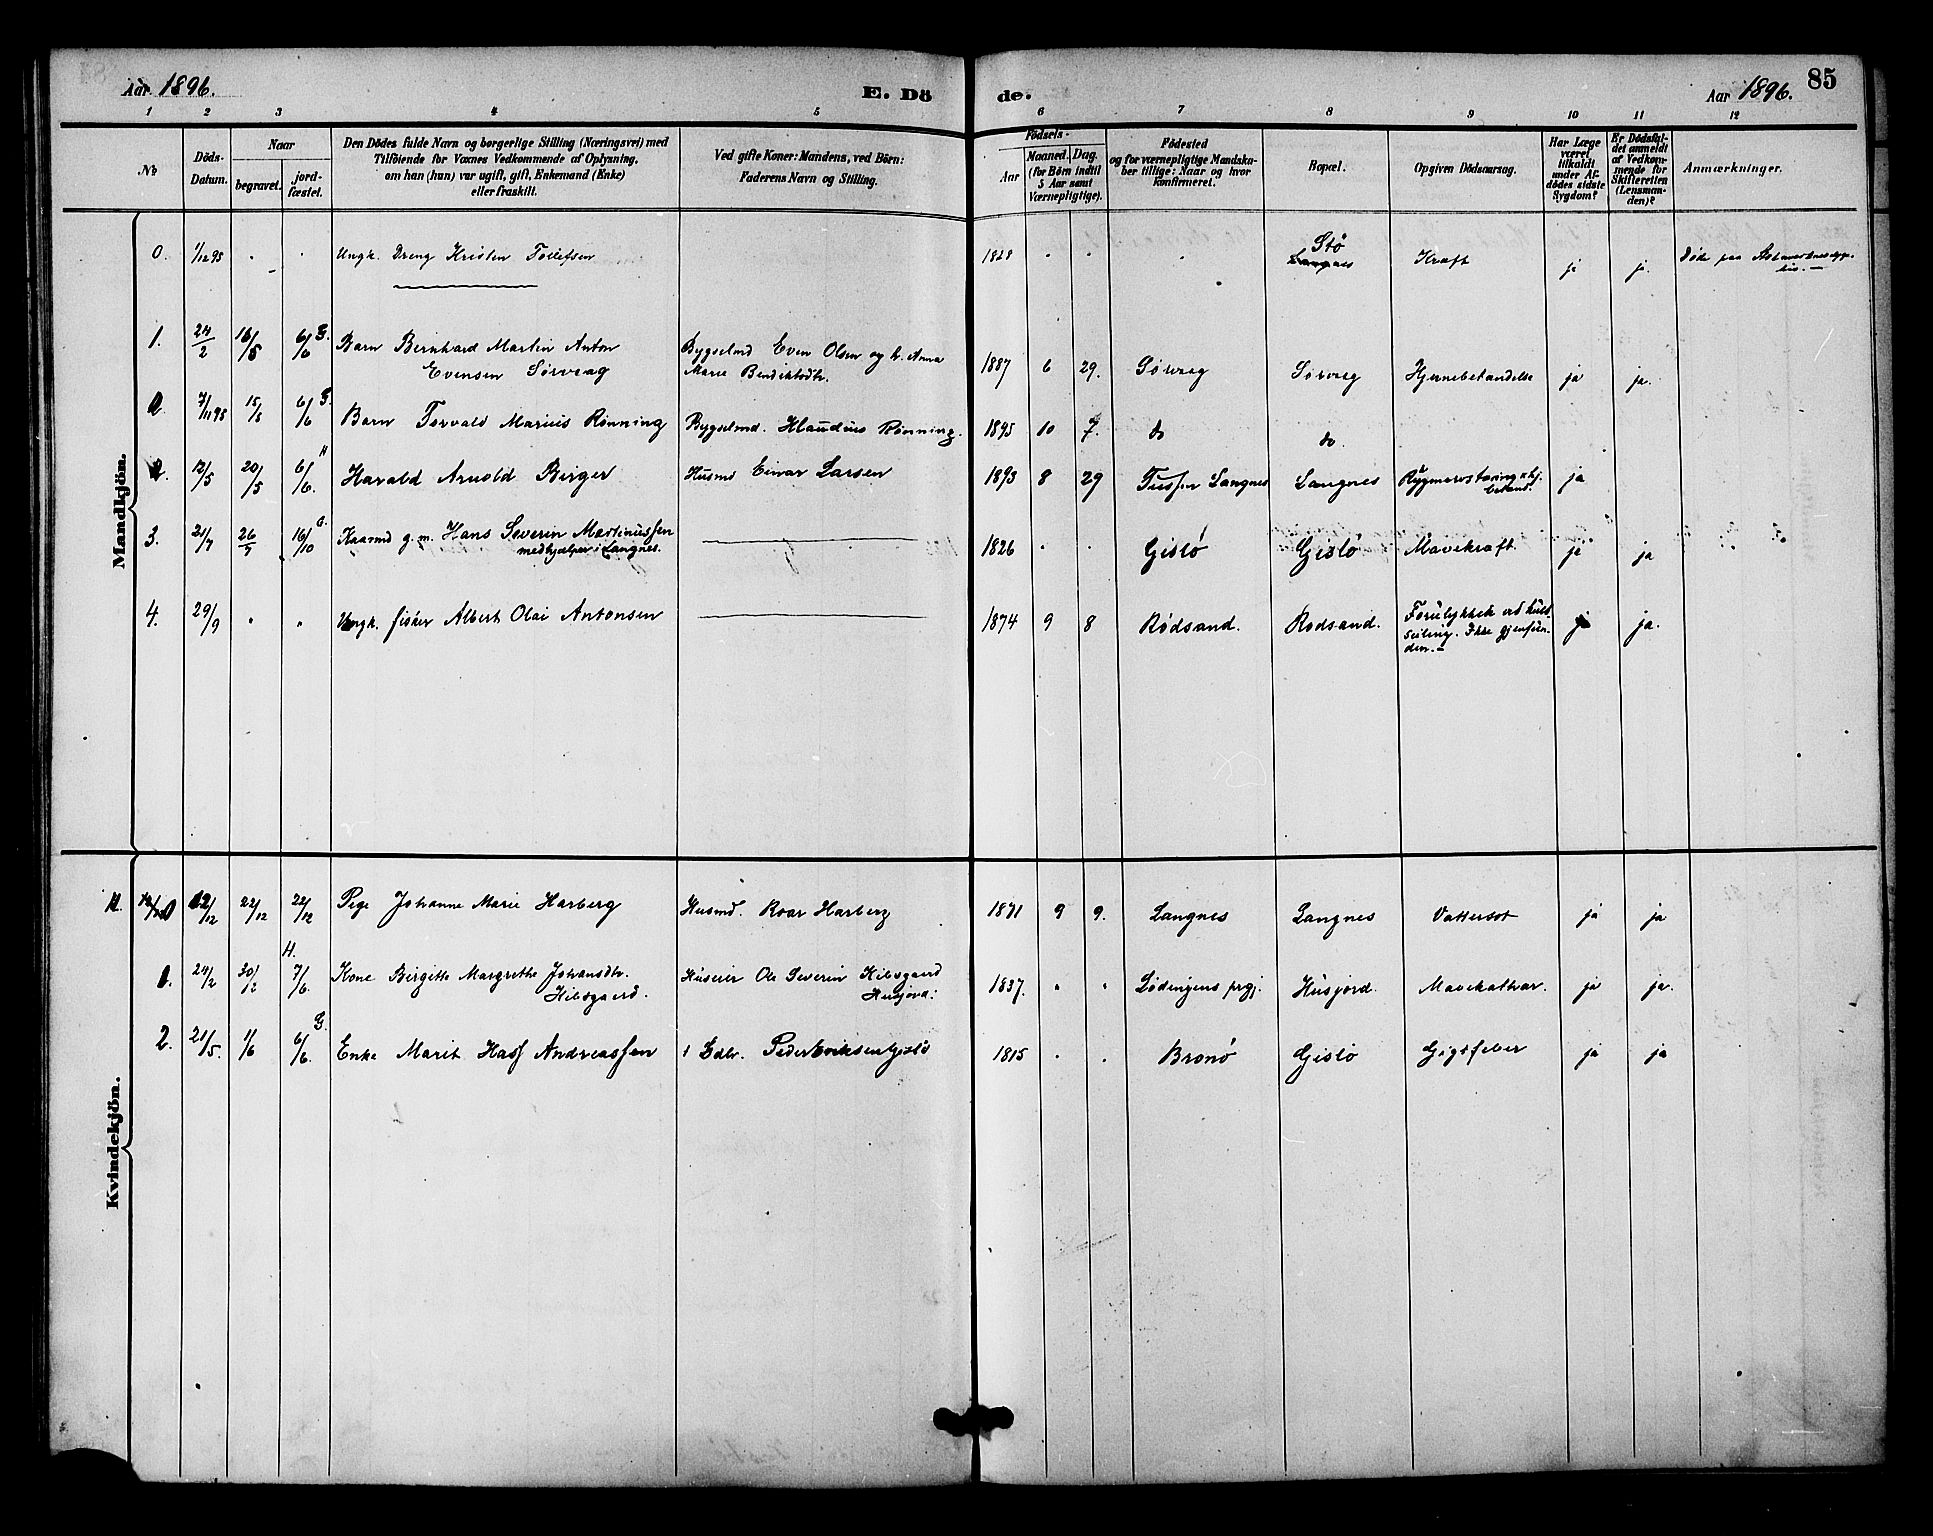 Aar 1896.
E. Dö
de.
Aar 1896.
85
1 2 3 4 5 6 7 8 9 10 11 12
No
Döds-
Datum.
Naar
begravet.
jord-
fæstet.
Den Dödes fulde Navn og borgerlige Stilling (Næringsvei) med
Tilföiende for Voxnes Vedkommende af Oplysning,
om han (hun) var ugift, gift, Enkemand (Enke)
eller fraskilt.
Ved gifte Koner: Mandens, ved Börn:
Faderens Navn og Stilling.
Födsels-
Aar
Maaned.
Dag.
(for Börn indtil
5 Aar samt
Værnepligtige).
Födested
og for værnepligtige Mandska-
ber tillige: Naar og hvor
konfirmeret.
Bopæl.
Opgiven Dödsaarsag.
Har Læge
været
tilkaldt
under Af-
dödes sidste
Sygdom?
Er Dödsfal-
det anmeldt
af Vedkom-
mende for
Skifteretten
(Lensman-
den)?
Anmærkninger.
Mandkjön.
0. 1/12 95 Ungk. Dreng Kristen Tollefsen 1828 Stø Kræft ja ja.
Langnes
1. 24/2 16/5 6/6 G. Barn Bernhard Martin Anton Bygselmd Even Olsen og h. Anna 1887 6 29. Sørvaag Sørvaag Hjernebetændelse ja ja.
Evensen Sørvaag Marie Bendiktsdtr.
7/11 95 15/5 6/6 G. Barn Torvald Marius Rønning Bygselmd. Klaudius Rønning. 1895 10 7. do do.
2. 12/5 20/5 6/6. H Harald Arnold Birger Husmd Einar Larsen 1893 8 29 Langnes Langnes ja
3. 21/7 26/7 16/10 G. Kaarmd g.m. Hans Severin Martinussen 1826 Gislö Gislö Mavekræft ja ja
medhjælper i Langnes.
4. 29/9 Ungk. fisker Albert Olai Antonsen 1874 9 8 Rödsand. Rodsand. Forulykket ved kuld- ja.
seiling. Ikke gjenfun-
den.-
Kvindekjön.
0 12/12 22/12 22/12 Pige Johanne Marie Harberg Husmd. Roar Harberg 1871 9 9. Langnes Langnes Vattersot ja ja
1. 24/2 30/2 7/6. H. Kone Birgitte Margrethe Johansdtr. Huseier Ole Severin Kilsgaard 1837. Lödingens prgj. Husjord. Mavekathar. ja ja.
Kilsgaard. Husjord.
2. 21/5. 1/6 6/6. G. Enke Marit Hass Andreassen Peder Eriksen Gislö 1815 Brönö Gislö Gigtfeber ja ja